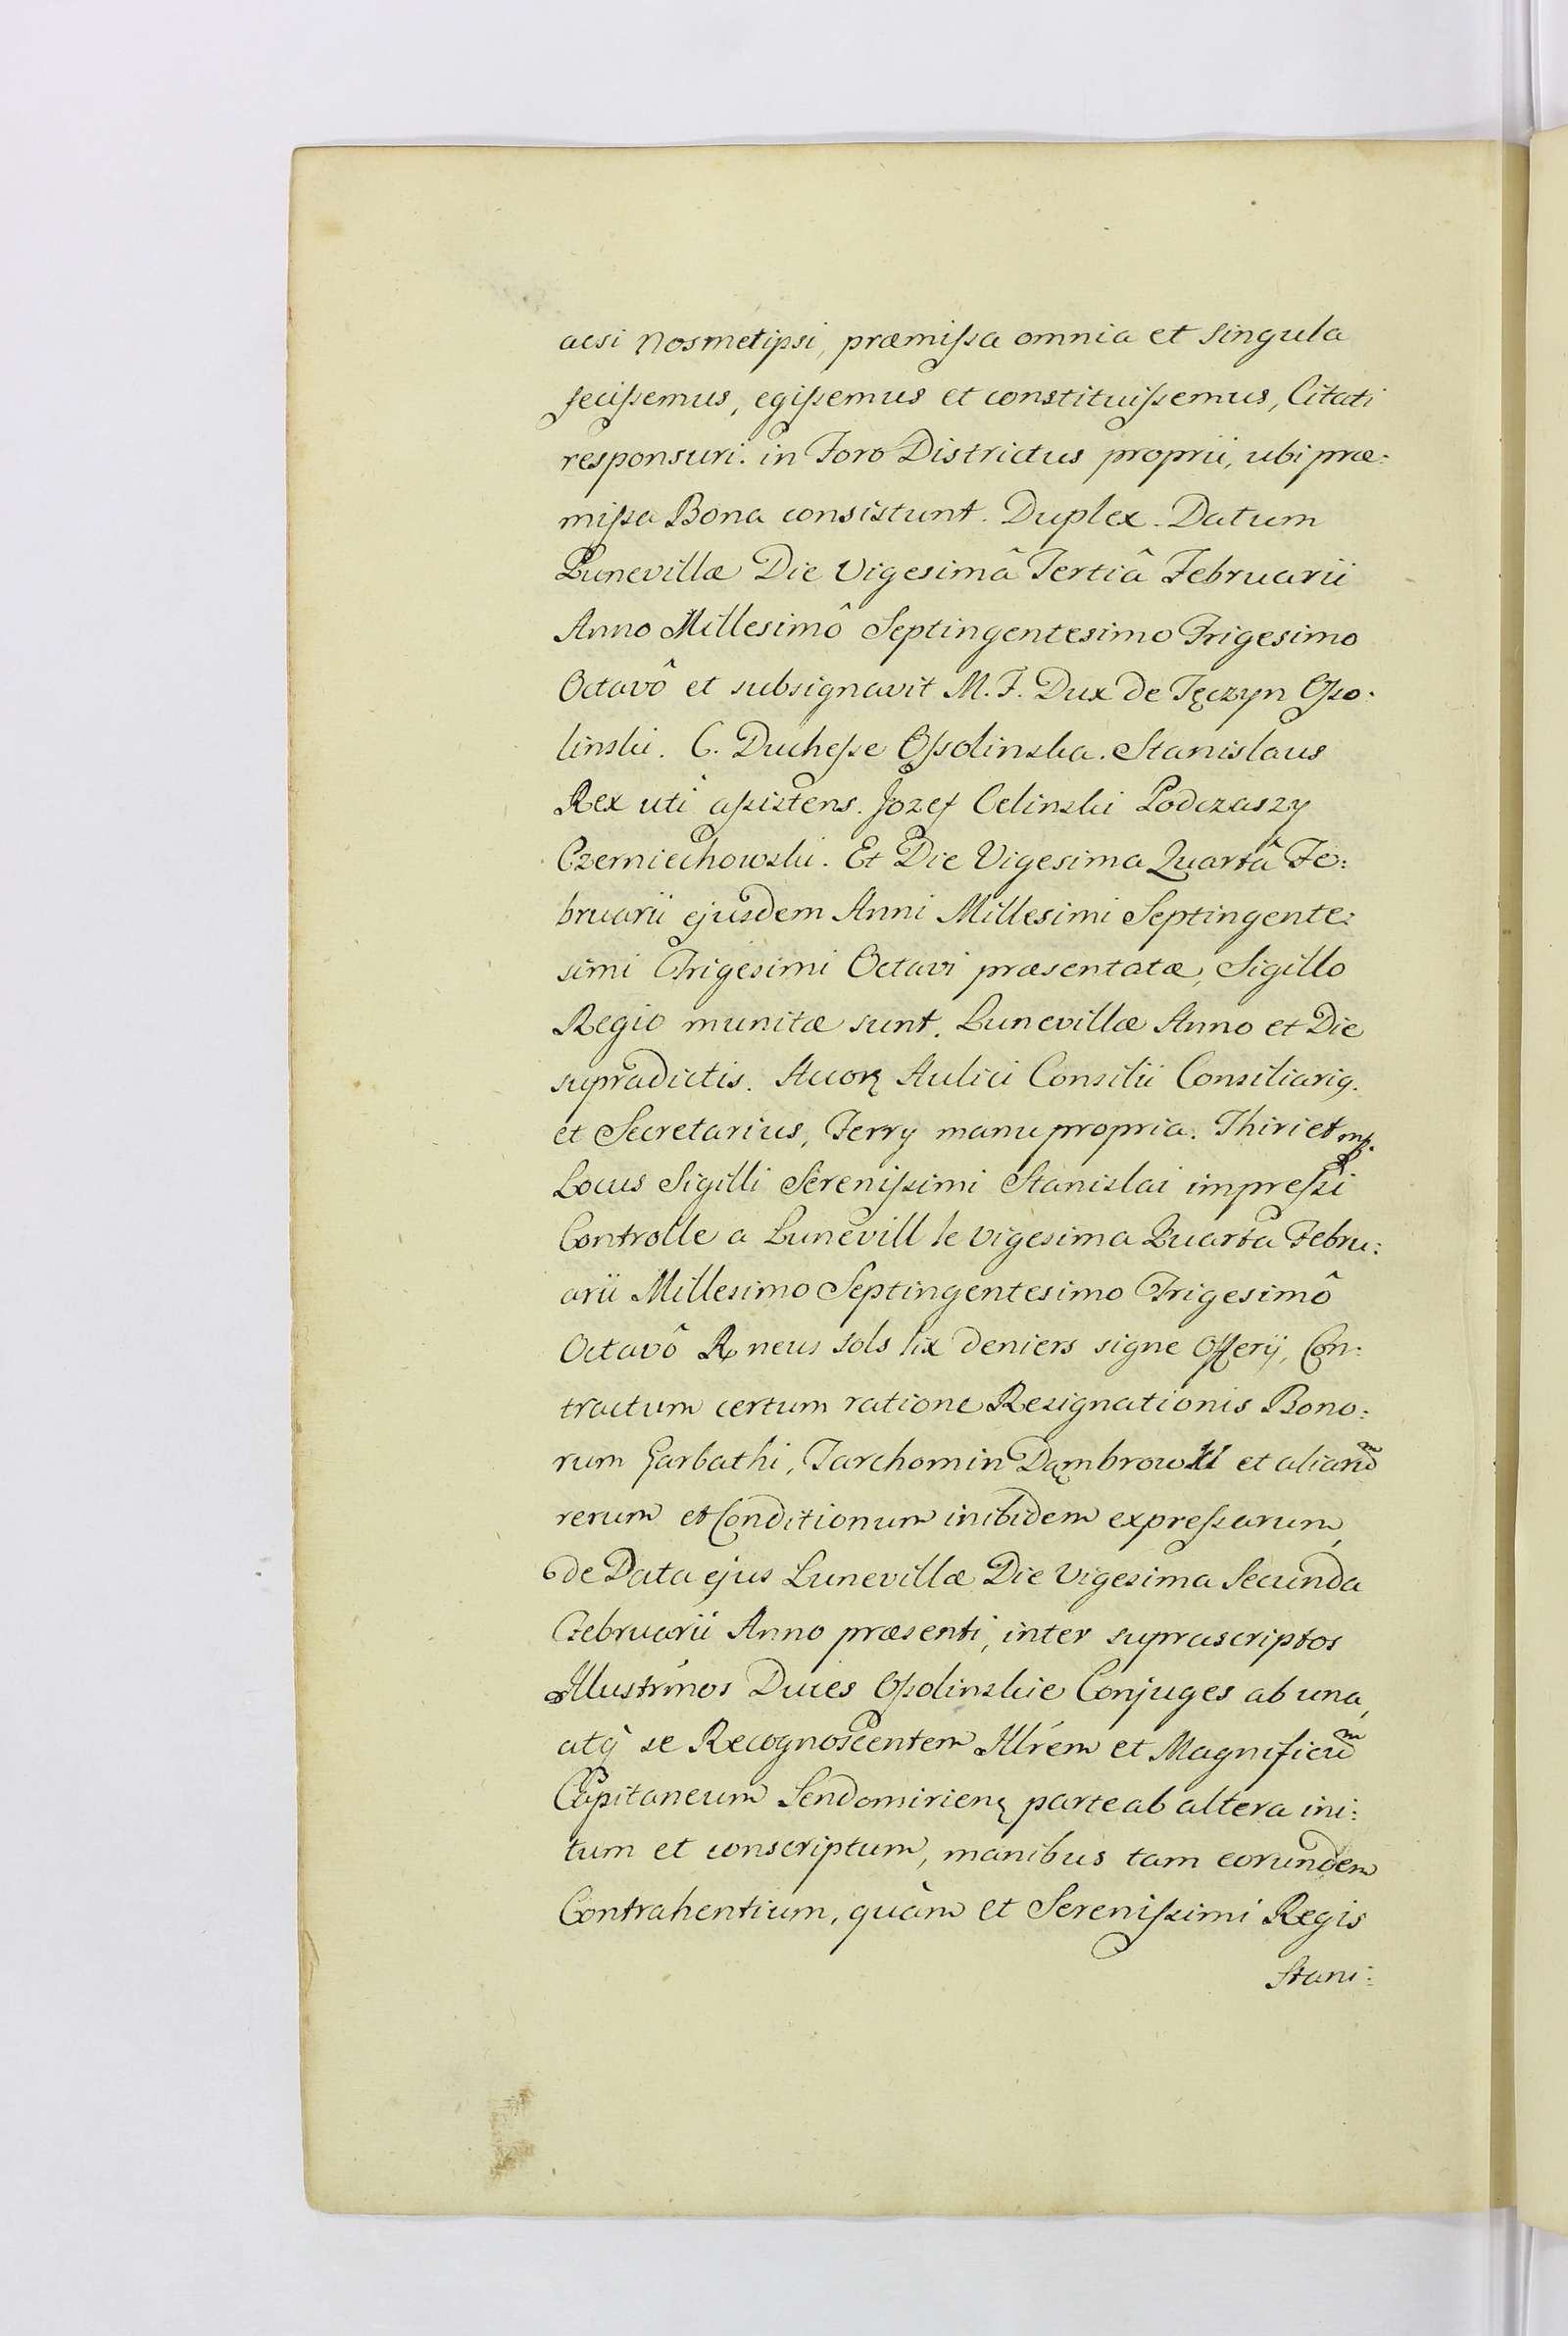 acsi nosmetipsi, præmißa omnia et singula
fecißemus, egißemus et constituißemus, Citati
responsuri. in Foro Districtus proprii, ubi præ:
mißa Bona consistunt. Duplex. Datum
Lunevillæ Die Vigesimâ Tertiâ Februarii
Anno Millesimô Septingentesimo Trigesimo
Octavô et subsignavit M. F. Dux de Tęczyn Oßo:
linski. C. Ducheße Oßolinska. Stanislaus
Rex uti aßistens. Jozef Celinski Podczaszy
Czerniechowski. Et Die Vigesima Quartâ Fe:
bruarii ejusdem Anni Millesimi Septingente:
simi Trigesimi Octavi præsentatæ, Sigillo
Regio munitæ sunt. Lunevillæ Anno et Die
supradictis. Aulici Consilii Consiliariꝯ.
et Secretarius, Ferry manu propria. Thiriet mp.
Locus Sigilli Serenißimi Stanislai impreßi
Controlle a Lunevill le vigesima Quarta Febru:
arii Millesimo Septingentesimo Trigesimô
Octavô neus sols six deniers signe Con:
tractum certum ratione Resignationis Bono:
rum Garbathi, Tarchomin et aliarũ
rerum et Conditionum inibidem expreßarum,
de Data ejus Lunevillæ Die Vigesima Secunda
Februarii Anno præsenti, inter suprascriptos
Illustrĩnos Duces Oßolinskie Conjuges ab una,
atq̀ se Recognoscentem Illrém et Magnificũ
Capitaneum Sendomirienꝫ parte ab altera ini:
tum et conscriptum, manibus tam eorundem
Contrahentium, quàm et Sereníßimi Regis
Stani: